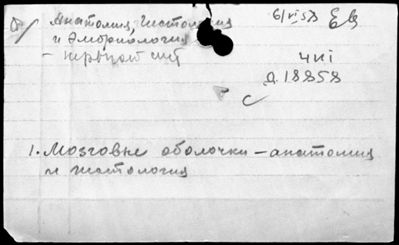 Анатомия, Гистология
и Эмбриология
- нервной сист
6/VI 53
Д. 18858
С
1. Мозговые оболочки – анатомия
и гистология